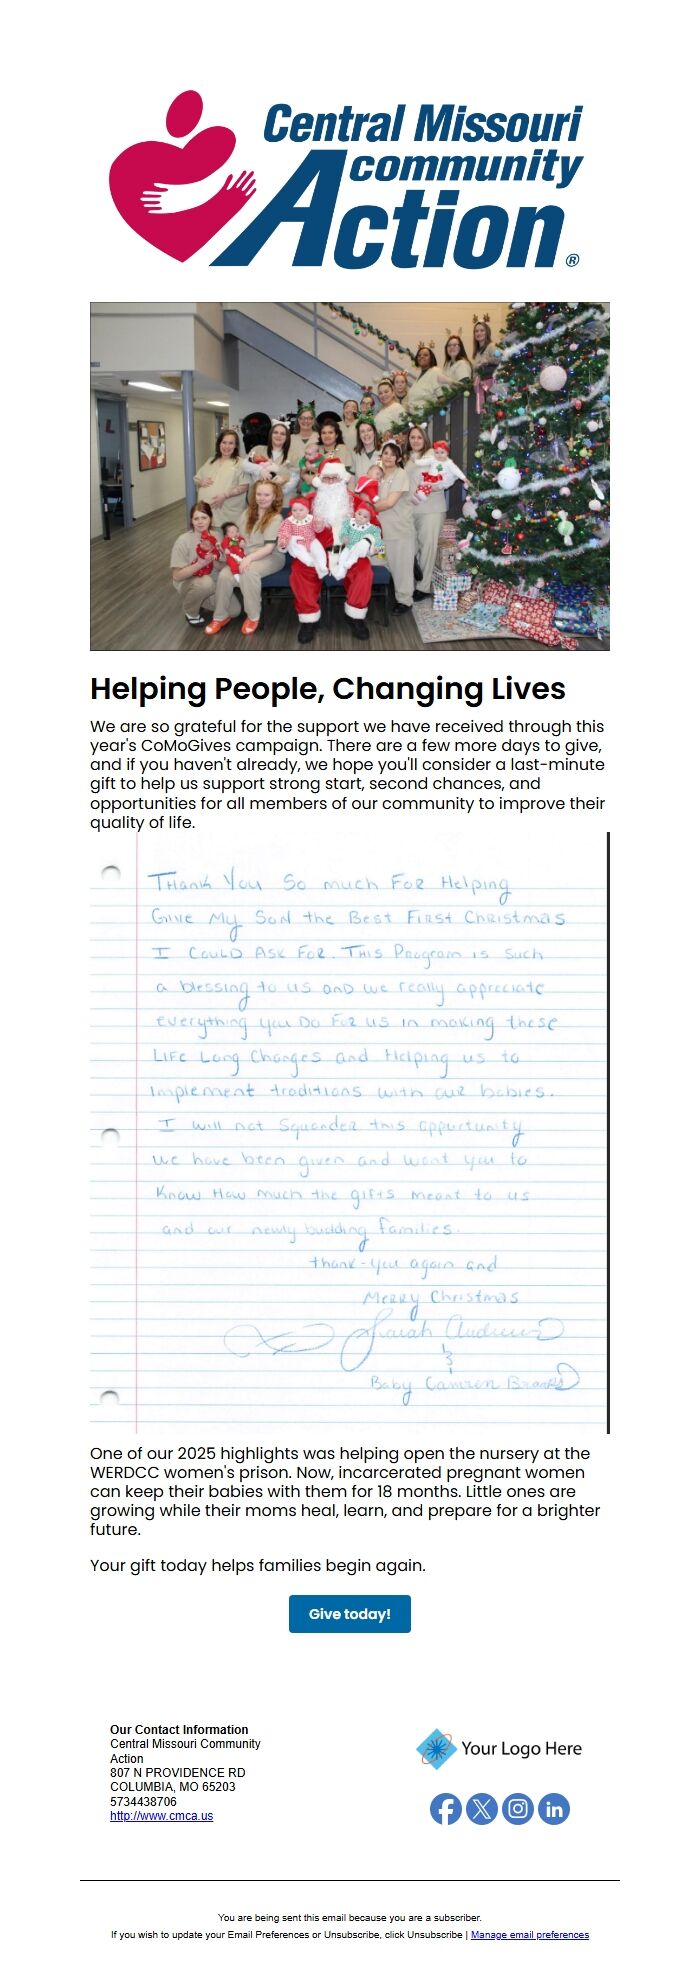 Central Missouri
community
Action®
Helping People, Changing Lives
We are so grateful for the support we have received through this
year's CoMoGives campaign. There are a few more days to give,
and if you haven't already, we hope you'll consider a last-minute
gift to help us support strong start, second chances, and
opportunities for all members of our community to improve their
quality of life.
Thank You So much For Helping
Give My Son the Best First Christmas
I Could Ask For. This Program is such
a blessing to us and we really appreciate
everything you Do For us in making these
Life Long Changes and Helping us to
implement traditions with our babies.
I will not Squander this oppurtunity
we have been given and want you to
Know How much the gifts meant to us
and our newly budding families.
thank-you again and
Merry Christmas
Sarah Andrews
&
Baby Camren Brooks
One of our 2025 highlights was helping open the nursery at the
WERDCC women's prison. Now, incarcerated pregnant women
can keep their babies with them for 18 months. Little ones are
growing while their moms heal, learn, and prepare for a brighter
future.
Your gift today helps families begin again.
Give today!
Our Contact Information
Central Missouri Community
Action
807 N PROVIDENCE RD
COLUMBIA, MO 65203
5734438706
http://www.cmca.us
Your Logo Here
You are being sent this email because you are a subscriber.
If you wish to update your Email Preferences or Unsubscribe, click Unsubscribe | Manage email preferences